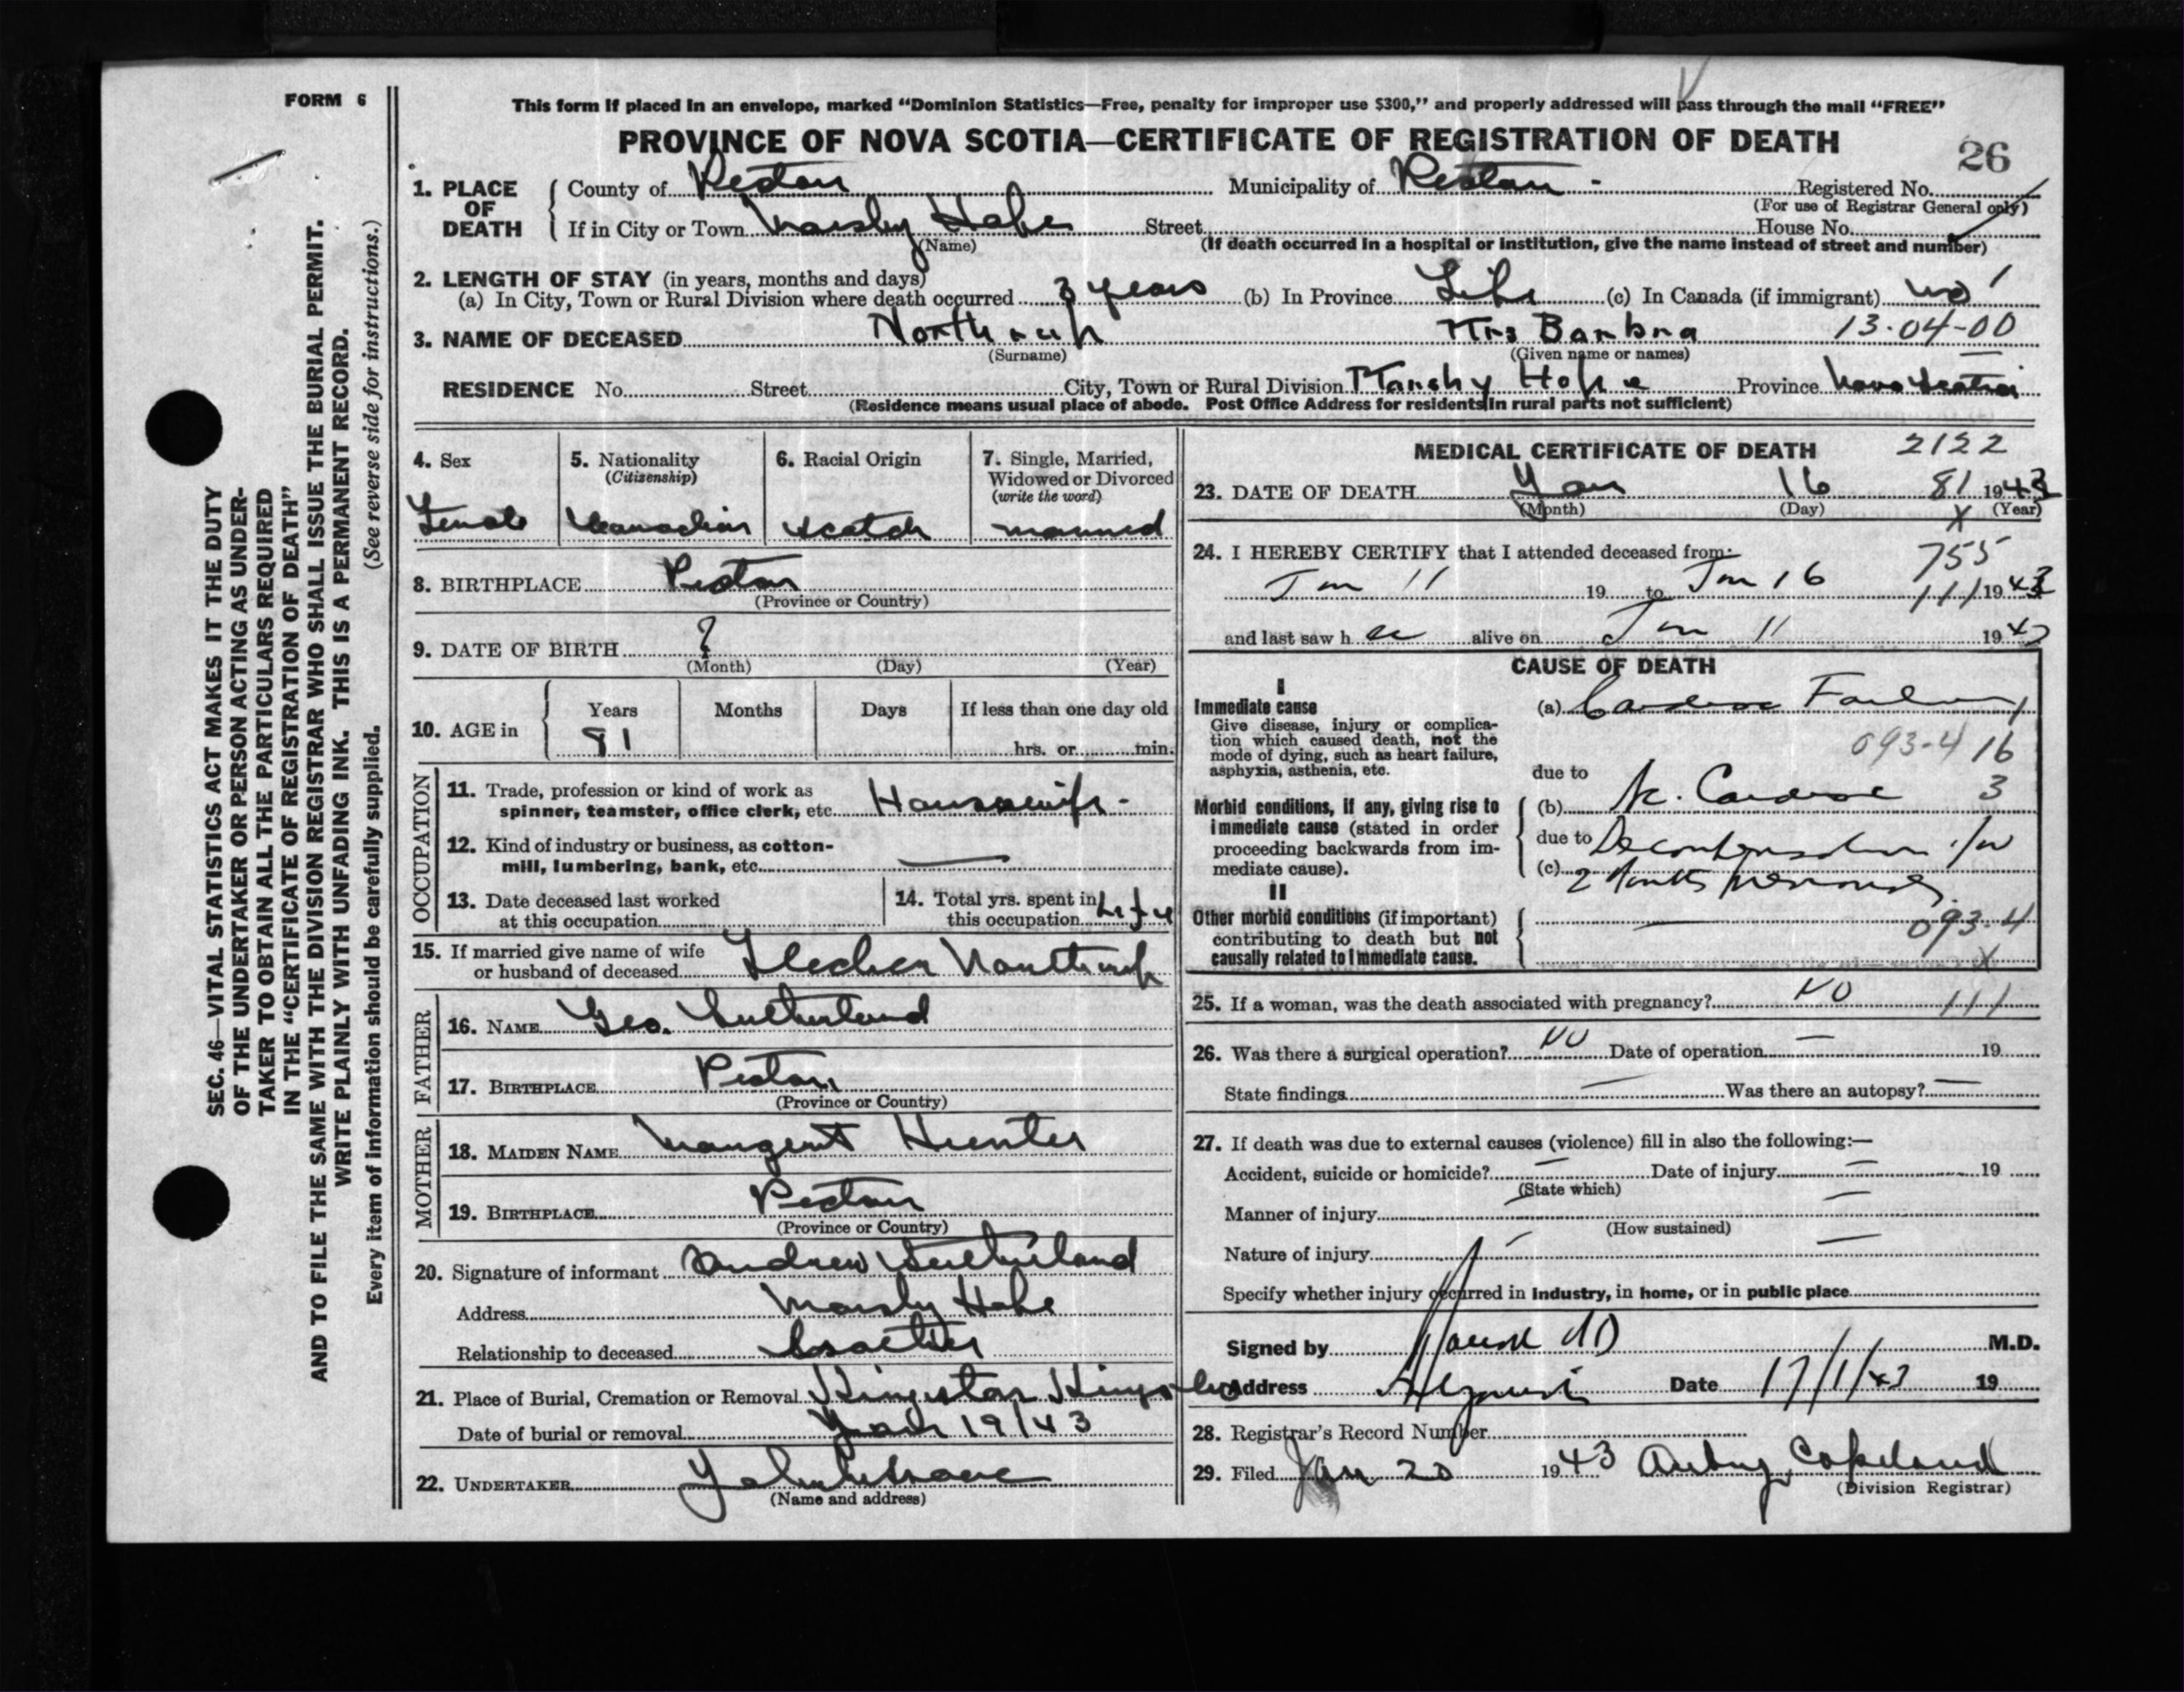 FORM 6
This form if placed in an envelope, marked "Dominion Statistics—Free, penalty for improper use $300," and properly addressed will pass through the mail "FREE"
PROVINCE OF NOVA SCOTIA—CERTIFICATE OF REGISTRATION OF DEATH
26
1. PLACE OF DEATH
County of Pictou Municipality of Pictou - Registered No.
(For use of Registrar General only)
If in City or Town Marshy Hope Street House No.
(Name) (If death occurred in a hospital or institution, give the name instead of street and number)
2. LENGTH OF STAY (in years, months and days)
(a) In City, Town or Rural Division where death occurred 3 years (b) In Province Life (c) In Canada (if immigrant) no
3. NAME OF DECEASED Northrup Mrs Barbra 13-04-00
(Surname) (Given name or names)
RESIDENCE No. Street City, Town or Rural Division Marshy Hope Province Nova Scotia
(Residence means usual place of abode. Post Office Address for residents in rural parts not sufficient)
4. Sex
Female
5. Nationality
(Citizenship)
Canadian
6. Racial Origin
Scotch
7. Single, Married,
Widowed or Divorced
(write the word)
married
8. BIRTHPLACE Pictou
(Province or Country)
9. DATE OF BIRTH ?
(Month) (Day) (Year)
10. AGE in
Years Months Days If less than one day old
81 hrs. or min.
OCCUPATION
11. Trade, profession or kind of work as
spinner, teamster, office clerk, etc. Housewife -
12. Kind of industry or business, as cotton-
mill, lumbering, bank, etc. —
13. Date deceased last worked
at this occupation
14. Total yrs. spent in
this occupation Life
15. If married give name of wife
or husband of deceased Flecher Northrup
FATHER
16. NAME Geo. Sutherland
17. BIRTHPLACE Pictou
(Province or Country)
MOTHER
18. MAIDEN NAME Margent Hunter
19. BIRTHPLACE Pictou
(Province or Country)
20. Signature of informant Andrew Sutherland
Address Marshy Hope
Relationship to deceased Brother
21. Place of Burial, Cremation or Removal Kingston Kings Co
Date of burial or removal 19/43
22. UNDERTAKER
(Name and address)
MEDICAL CERTIFICATE OF DEATH 2122
23. DATE OF DEATH Jan 16 81 1943
(Month) (Day) X (Year)
24. I HEREBY CERTIFY that I attended deceased from:
755
Jan 11 19 to Jan 16 111 1943
and last saw h er alive on Jan 11 1943
CAUSE OF DEATH
I
Immediate cause
Give disease, injury or complica-
tion which caused death, not the
mode of dying, such as heart failure,
asphyxia, asthenia, etc.
(a) Cardiac Failure
093-4 16
due to
Morbid conditions, if any, giving rise to
immediate cause (stated in order
proceeding backwards from im-
mediate cause).
(b) Cardiac 3
due to Decompensation for
(c) 2 Months previously
II
Other morbid conditions (if important)
contributing to death but not
causally related to immediate cause.
—
093-4
X
25. If a woman, was the death associated with pregnancy? NO 111
26. Was there a surgical operation? NO Date of operation — 19
State findings — Was there an autopsy? —
27. If death was due to external causes (violence) fill in also the following:—
Accident, suicide or homicide? — Date of injury — 19
(State which)
Manner of injury —
(How sustained)
Nature of injury —
Specify whether injury occurred in industry, in home, or in public place
Signed by MD M.D.
Address Date 17/1/43 19
28. Registrar's Record Number
29. Filed Jan 20 1943 Copeland
(Division Registrar)
SEC. 46—VITAL STATISTICS ACT MAKES IT THE DUTY
OF THE UNDERTAKER OR PERSON ACTING AS UNDER-
TAKER TO OBTAIN ALL THE PARTICULARS REQUIRED
IN THE "CERTIFICATE OF REGISTRATION OF DEATH"
AND TO FILE THE SAME WITH THE DIVISION REGISTRAR WHO SHALL ISSUE THE BURIAL PERMIT.
WRITE PLAINLY WITH UNFADING INK. THIS IS A PERMANENT RECORD.
Every item of information should be carefully supplied. (See reverse side for instructions.)